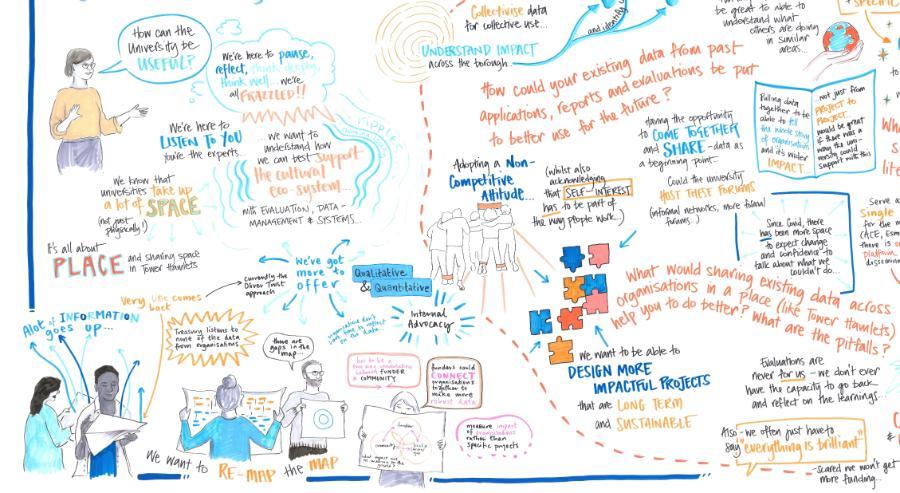 How can the
University be
USEFUL?
We're here to pause,
reflect, think deeply,
think well... we're
all FRAZZLED!!
We're here to
LISTEN TO YOU
you're the experts...
...we want to
understand how
we can best support
the cultural
eco-system...
with EVALUATION, DATA-
MANAGEMENT & SYSTEMS...
We know that
universities take up
a lot of SPACE
(not just
physically!)
It's all about
PLACE and sharing space
in Tower Hamlets
We've got
more to
offer
Currently the
approach
Very little comes
back
Alot of INFORMATION
goes up...
Treasury listens to
none of the data
from organisations
there are
gaps in the
map
We want to RE-MAP the MAP
Qualitative
& Quantitative
Internal
Advocacy
organisations don't
have time to reflect
on the data
between FUNDER
& COMMUNITY
funders could
CONNECT
organisations
together to
make more
robust data
measure impact
of organisations
rather than
specific projects
Collectivise data
for collective use...
UNDERSTAND IMPACT
across the borough...
and identify
be great to able to
understand what
others are doing
in similar
areas...
How could your existing data from past
applications, reports and evaluations be put
to better use for the future?
Adopting a Non-
Competitive
Attitude...
(Whilst also
acknowledging
that SELF-INTEREST
has to be part of
the way people work...)
Having the opportunity
to COME TOGETHER
and SHARE - data as
a beginning point
Could the university
HOST THESE FORUMS
(informal networks, more formal
forums..)
Pulling data
together to be
able to tell
the whole story
of organisations
and it's wider
IMPACT...
...not just from
PROJECT to
PROJECT
would be great
if there was a
way the uni-
versity could
support with this
Since Covid, there
has been more space
to expect change
and confidence to
talk about what we
couldn't do...
Serve a
Single
for the m
(ACE, Esm
there is
platform
What would sharing existing data across
organisations in a place (like Tower Hamlets)
help you to do better? What are the
pitfalls?
We want to be able to
DESIGN MORE
IMPACTFUL PROJECTS
that are LONG TERM
and SUSTAINABLE
Evaluations are
never for us - we don't ever
have the capacity to go back
and reflect on the learnings...
Also - we often just have to
say "everything is brilliant"
- scared we won't get
more funding...